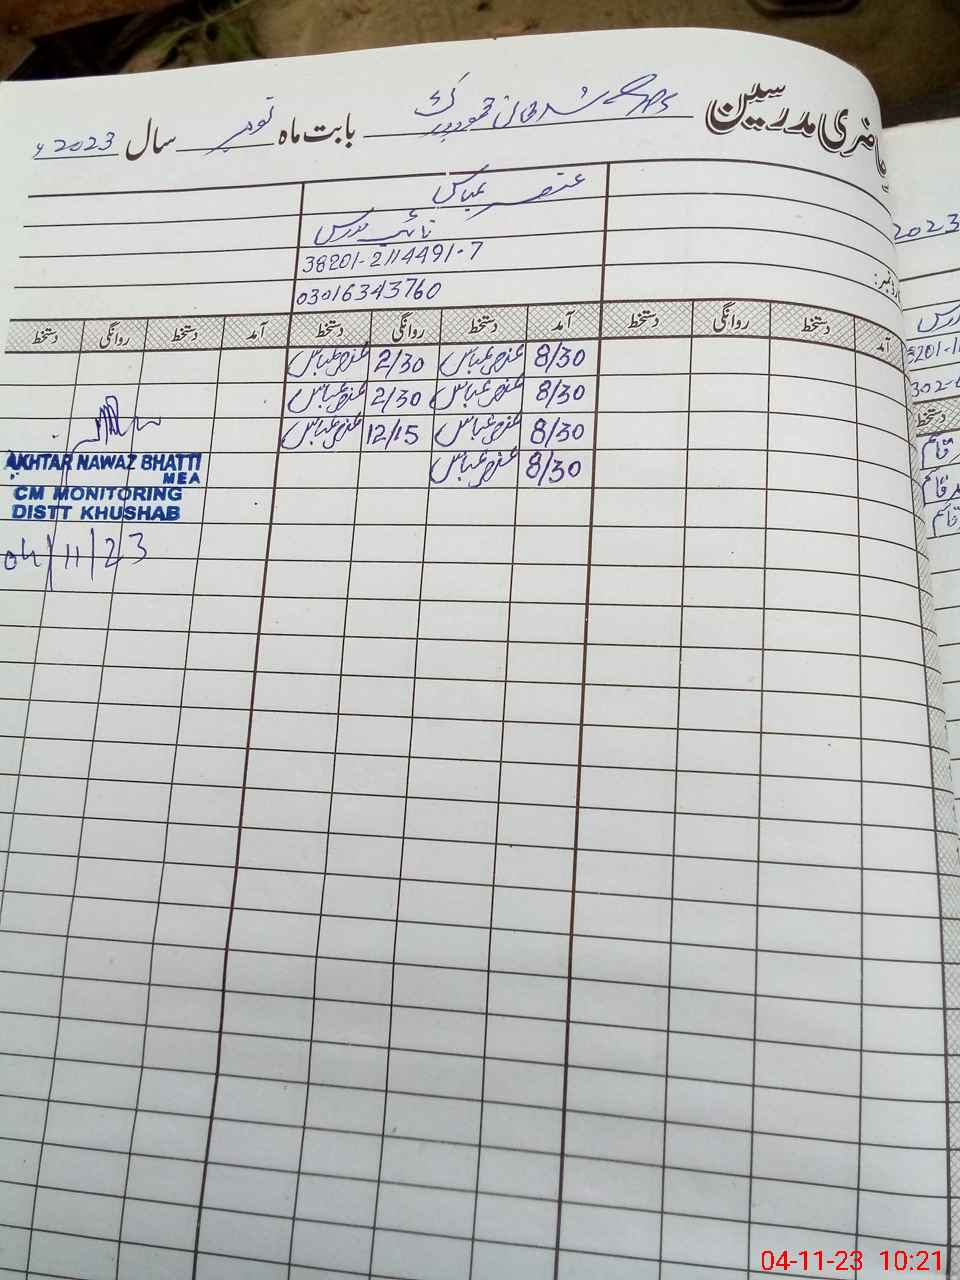 حاضری مدرسین GPS بابت ماہ نومبر سال 2023ء
عنصر عباس
نائب مدرس
38201-2114491-7
03016343760
آمد دستخط روانگی دستخط آمد دستخط روانگی دستخط آمد دستخط روانگی دستخط
8/30 عنصر عباس 2/30 عنصر عباس
8/30 عنصر عباس 2/30 عنصر عباس
8/30 عنصر عباس 12/15 عنصر عباس
8/30 عنصر عباس
AKHTAR NAWAZ BHATTI
MEA
CM MONITORING
DISTT KHUSHAB
04/11/23
2023
04-11-23 10:21